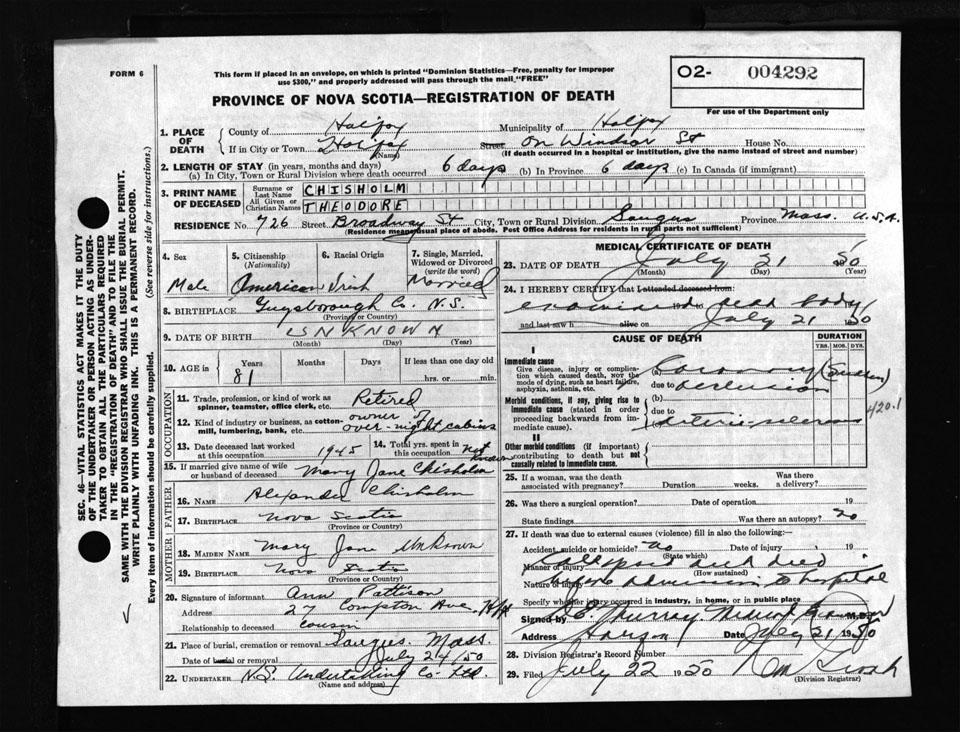 FORM 6
This form if placed in an envelope, on which is printed "Dominion Statistics—Free, penalty for improper
use $300," and properly addressed will pass through the mail "FREE"
O2- 004292
For use of the Department only
PROVINCE OF NOVA SCOTIA—REGISTRATION OF DEATH
SEC. 46—VITAL STATISTICS ACT MAKES IT THE DUTY
OF THE UNDERTAKER OR PERSON ACTING AS UNDER-
TAKER TO OBTAIN ALL THE PARTICULARS REQUIRED
IN THE "REGISTRATION OF DEATH" AND TO FILE THE
SAME WITH THE DIVISION REGISTRAR WHO SHALL ISSUE THE BURIAL PERMIT.
WRITE PLAINLY WITH UNFADING INK. THIS IS A PERMANENT RECORD.
Every item of information should be carefully supplied. (See reverse side for instructions.)
1. PLACE OF DEATH
County of Halifax Municipality of Halifax
If in City or Town Halifax (Name) Street on Windsor St House No.
(If death occurred in a hospital or institution, give the name instead of street and number)
2. LENGTH OF STAY (in years, months and days)
(a) In City, Town or Rural Division where death occurred 6 days (b) In Province 6 days (c) In Canada (if immigrant)
3. PRINT NAME OF DECEASED
Surname or Last Name CHISHOLM
All Given or Christian Names THEODORE
RESIDENCE No. 726 Street Broadway St City, Town or Rural Division Saugus Province Mass. U.S.A.
(Residence means usual place of abode. Post Office Address for residents in rural parts not sufficient)
4. Sex Male
5. Citizenship (Nationality) American
6. Racial Origin Irish
7. Single, Married, Widowed or Divorced (write the word) Married
8. BIRTHPLACE Guysborough Co. N.S.
(Province or Country)
9. DATE OF BIRTH UNKNOWN
(Month) (Day) (Year)
10. AGE in Years Months Days If less than one day old
81 hrs. or min.
OCCUPATION
11. Trade, profession, or kind of work as
spinner, teamster, office clerk, etc. Retired
12. Kind of industry or business, as cotton-
mill, lumbering, bank, etc. owner of over-night cabins
13. Date deceased last worked at this occupation 1945
14. Total yrs. spent in this occupation not known
15. If married give name of wife
or husband of deceased Mary Jane Chisholm
FATHER
16. NAME Alexander Chisholm
17. BIRTHPLACE Nova Scotia
(Province or Country)
MOTHER
18. MAIDEN NAME Mary Jane Unknown
19. BIRTHPLACE Nova Scotia
(Province or Country)
20. Signature of informant Ann Pattison
Address 27 Compton Ave. Hfx
Relationship to deceased cousin
21. Place of burial, cremation or removal Saugus. Mass.
Date of burial or removal July 24/50
22. UNDERTAKER N.S. Undertaking Co Ltd.
(Name and address)
MEDICAL CERTIFICATE OF DEATH
23. DATE OF DEATH July 21 1950
(Month) (Day) (Year)
24. I HEREBY CERTIFY that I attended deceased from:
examined dead body
and last saw h alive on July 21 1950
CAUSE OF DEATH
DURATION
YRS. MOS. DYS.
I
Immediate cause
Give disease, injury or complica-
tion which caused death, NOT the
mode of dying, such as heart failure,
asphyxia, asthenia, etc.
(a) Coronary (sudden)
due to occlusion
Morbid conditions, if any, giving rise to
immediate cause (stated in order
proceeding backwards from im-
mediate cause).
(b)
due to
(c) Arterio-sclerosis
420.1
II
Other morbid conditions (if important)
contributing to death but not
causally related to immediate cause.
25. If a woman, was the death
associated with pregnancy? Duration weeks. Was there a delivery?
26. Was there a surgical operation? Date of operation 19
State findings Was there an autopsy? no
27. If death was due to external causes (violence) fill in also the following:—
Accident, suicide or homicide? no Date of injury 19
(State which)
Manner of injury
(How sustained)
Collapsed died
Nature of injury before admission to hospital
Specify whether injury occurred in industry, in home, or in public place
Signed by Murray Medical Examiner M.D.
Address Date July 21 1950
28. Division Registrar's Record Number
29. Filed July 22 1950
(Division Registrar)